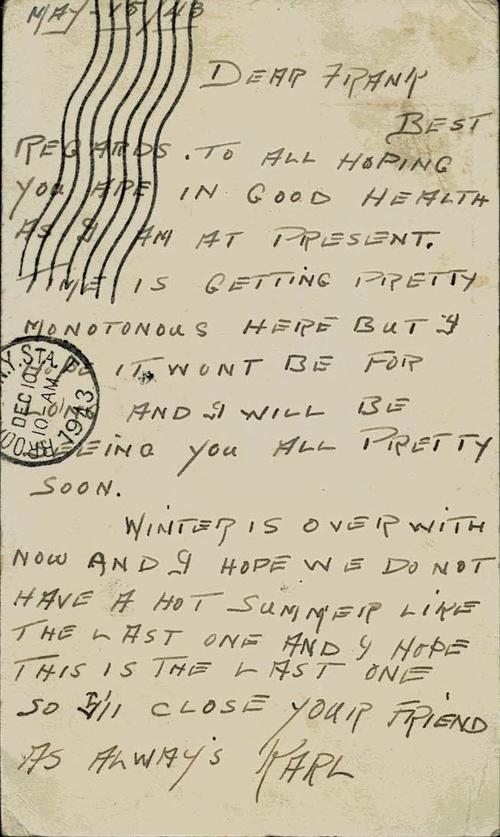 MAY - 15/43
DEAR FRANK
BEST
REGARDS. TO ALL HOPING
YOU ARE IN GOOD HEALTH
AS I AM AT PRESENT.
TIME IS GETTING PRETTY
MONOTONOUS HERE BUT I
HOPE IT WONT BE FOR
LONG AND I WILL BE
SEEING YOU ALL PRETTY
SOON.
WINTER IS OVER WITH
NOW AND I HOPE WE DO NOT
HAVE A HOT SUMMER LIKE
THE LAST ONE AND I HOPE
THIS IS THE LAST ONE
SO I'll CLOSE YOUR FRIEND
AS ALWAYS KARL
N.Y. STA.
DEC 10
10-AM
1943